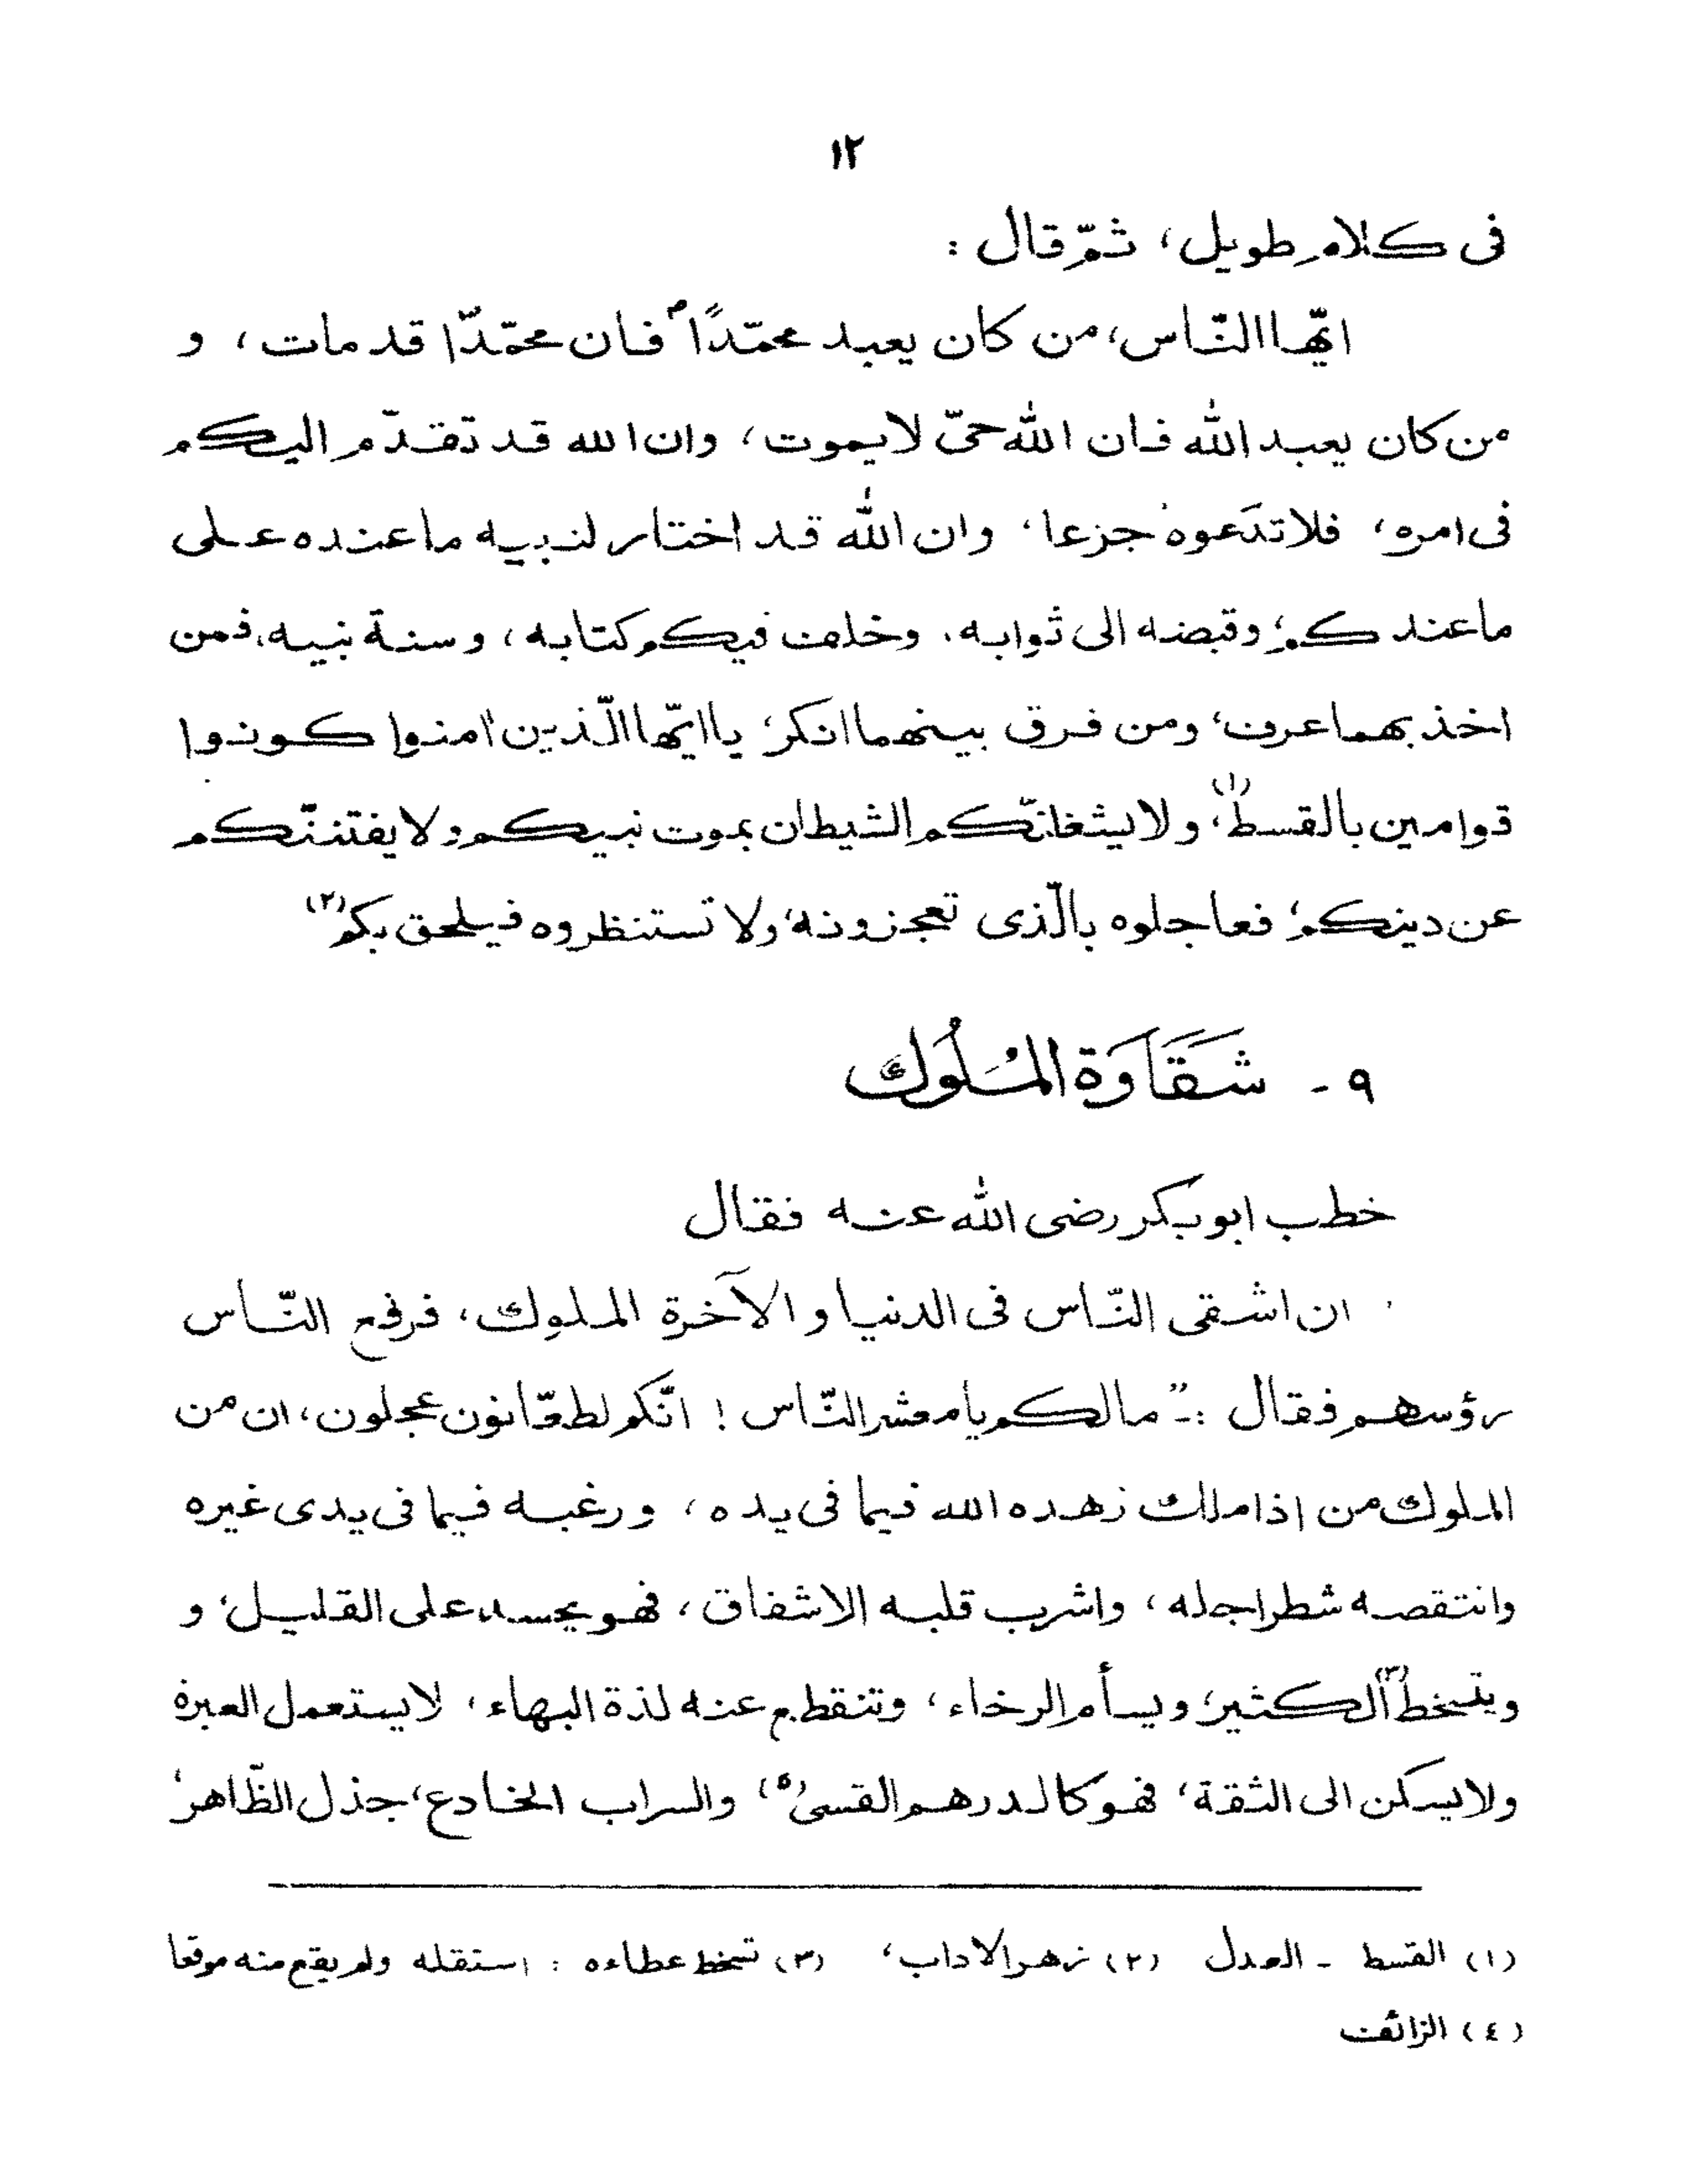 ١٢
فى كلام طويل، ثمّ قال :
ايّها النّاس، من كان يعبد محمّدًا فان محمّدّا قد مات، و
من كان يعبد الله فان الله حىّ لايموت، وان الله قد تقدّم اليكم
فى امره، فلا تدَعوه جزعا، وان الله قد اختار لنبيه ما عنده على
ما عندكم، وقبضه الى ثوابه، وخلف فيكم كتابه، وسنة نبيه، فمن
اخذ بهما عرف، ومن فرق بينهما انكر، يا ايّها الّذين امنوا كونوا
قوامين بالقسط(١)، ولا يشغلنّكم الشيطان بموت نبيكم ولا يفتننّكم
عن دينكم، فعاجلوه بالّذى تعجزونه، ولا تستنظروه فيلحق بكم(٢)
٩ - شَقَاوَة المُلُوك
خطب ابوبكر رضى الله عنه فقال
ان اشقى النّاس فى الدنيا و الآخرة الملوك، فرفع النّاس
رؤسهم فقال :ـ" مالكم يا معشر النّاس ! انّكم لطعّانون عجلون، ان من
الملوك من اذا ملك زهده الله فيما فى يده، ورغبه فيما فى يدى غيره
وانتقصه شطر اجله، واشرب قلبه الاشفاق، فهو يحسد على القليل، و
ويتسخط(٣) الكثير، ويسأم الرخاء، وتنقطع عنه لذة البهاء، لايستعمل العبرة
ولا يسكن الى الثقة، فهو كالدرهم القسى(٥)، والسراب الخادع، جذل الظّاهر،
(١) القسط - العدل (٢) زهر الاداب، (٣) تسخط عطاءه : استقله ولم يقع منه موقعا
(٤) الزائف